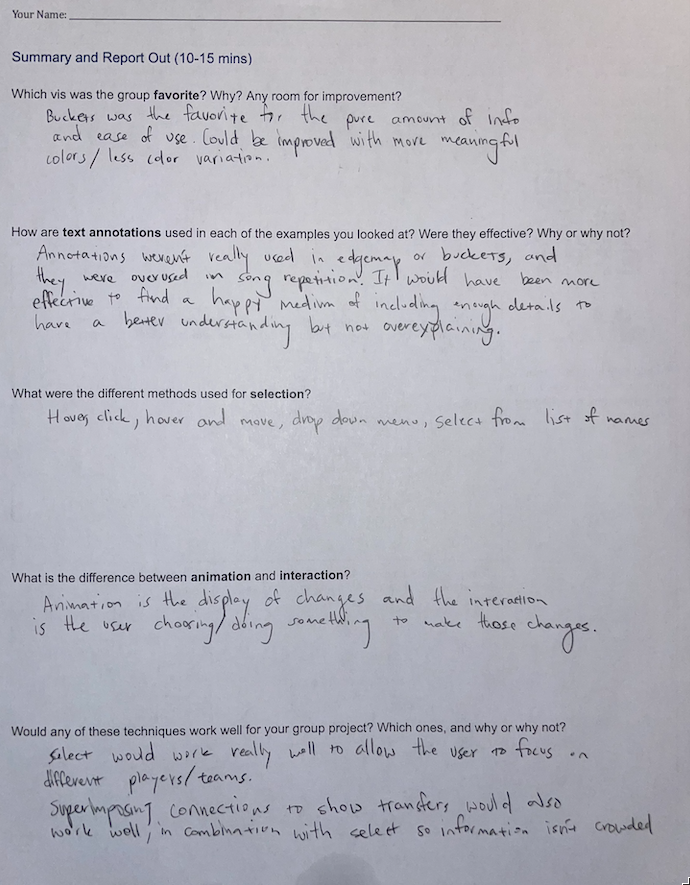 Your Name:
Summary and Report Out (10-15 mins)
Which vis was the group favorite? Why? Any room for improvement?
Buckets was the favorite for the pure amount of info
and ease of use. Could be improved with more meaningful
colors/less color variation.
How are text annotations used in each of the examples you looked at? Were they effective? Why or why not?
Annotations weren't really used in edgemap or buckets, and
they were overused in song repetition. It would have been more
effective to find a happy medium of including enough details to
have a better understanding but not overexplaining.
What were the different methods used for selection?
Hover, click, hover and move, drop down menu, select from list of names
What is the difference between animation and interaction?
Animation is the display of changes and the interaction
is the user choosing/doing something to make those changes.
Would any of these techniques work well for your group project? Which ones, and why or why not?
Select would work really well to allow the user to focus on
different players/teams.
Superimposing connections to show transfers would also
work well, in combination with select so information isn't crowded